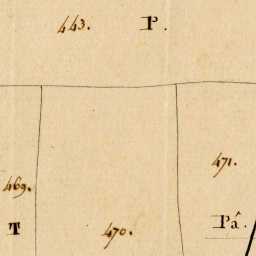 443. P.
471.
469.
Pâ.
T
470.